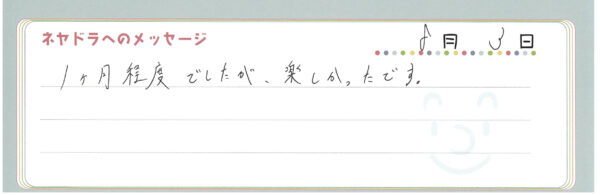 ネヤドラへのメッセージ
8月 3日
1ヶ月程度でしたが、楽しかったです。